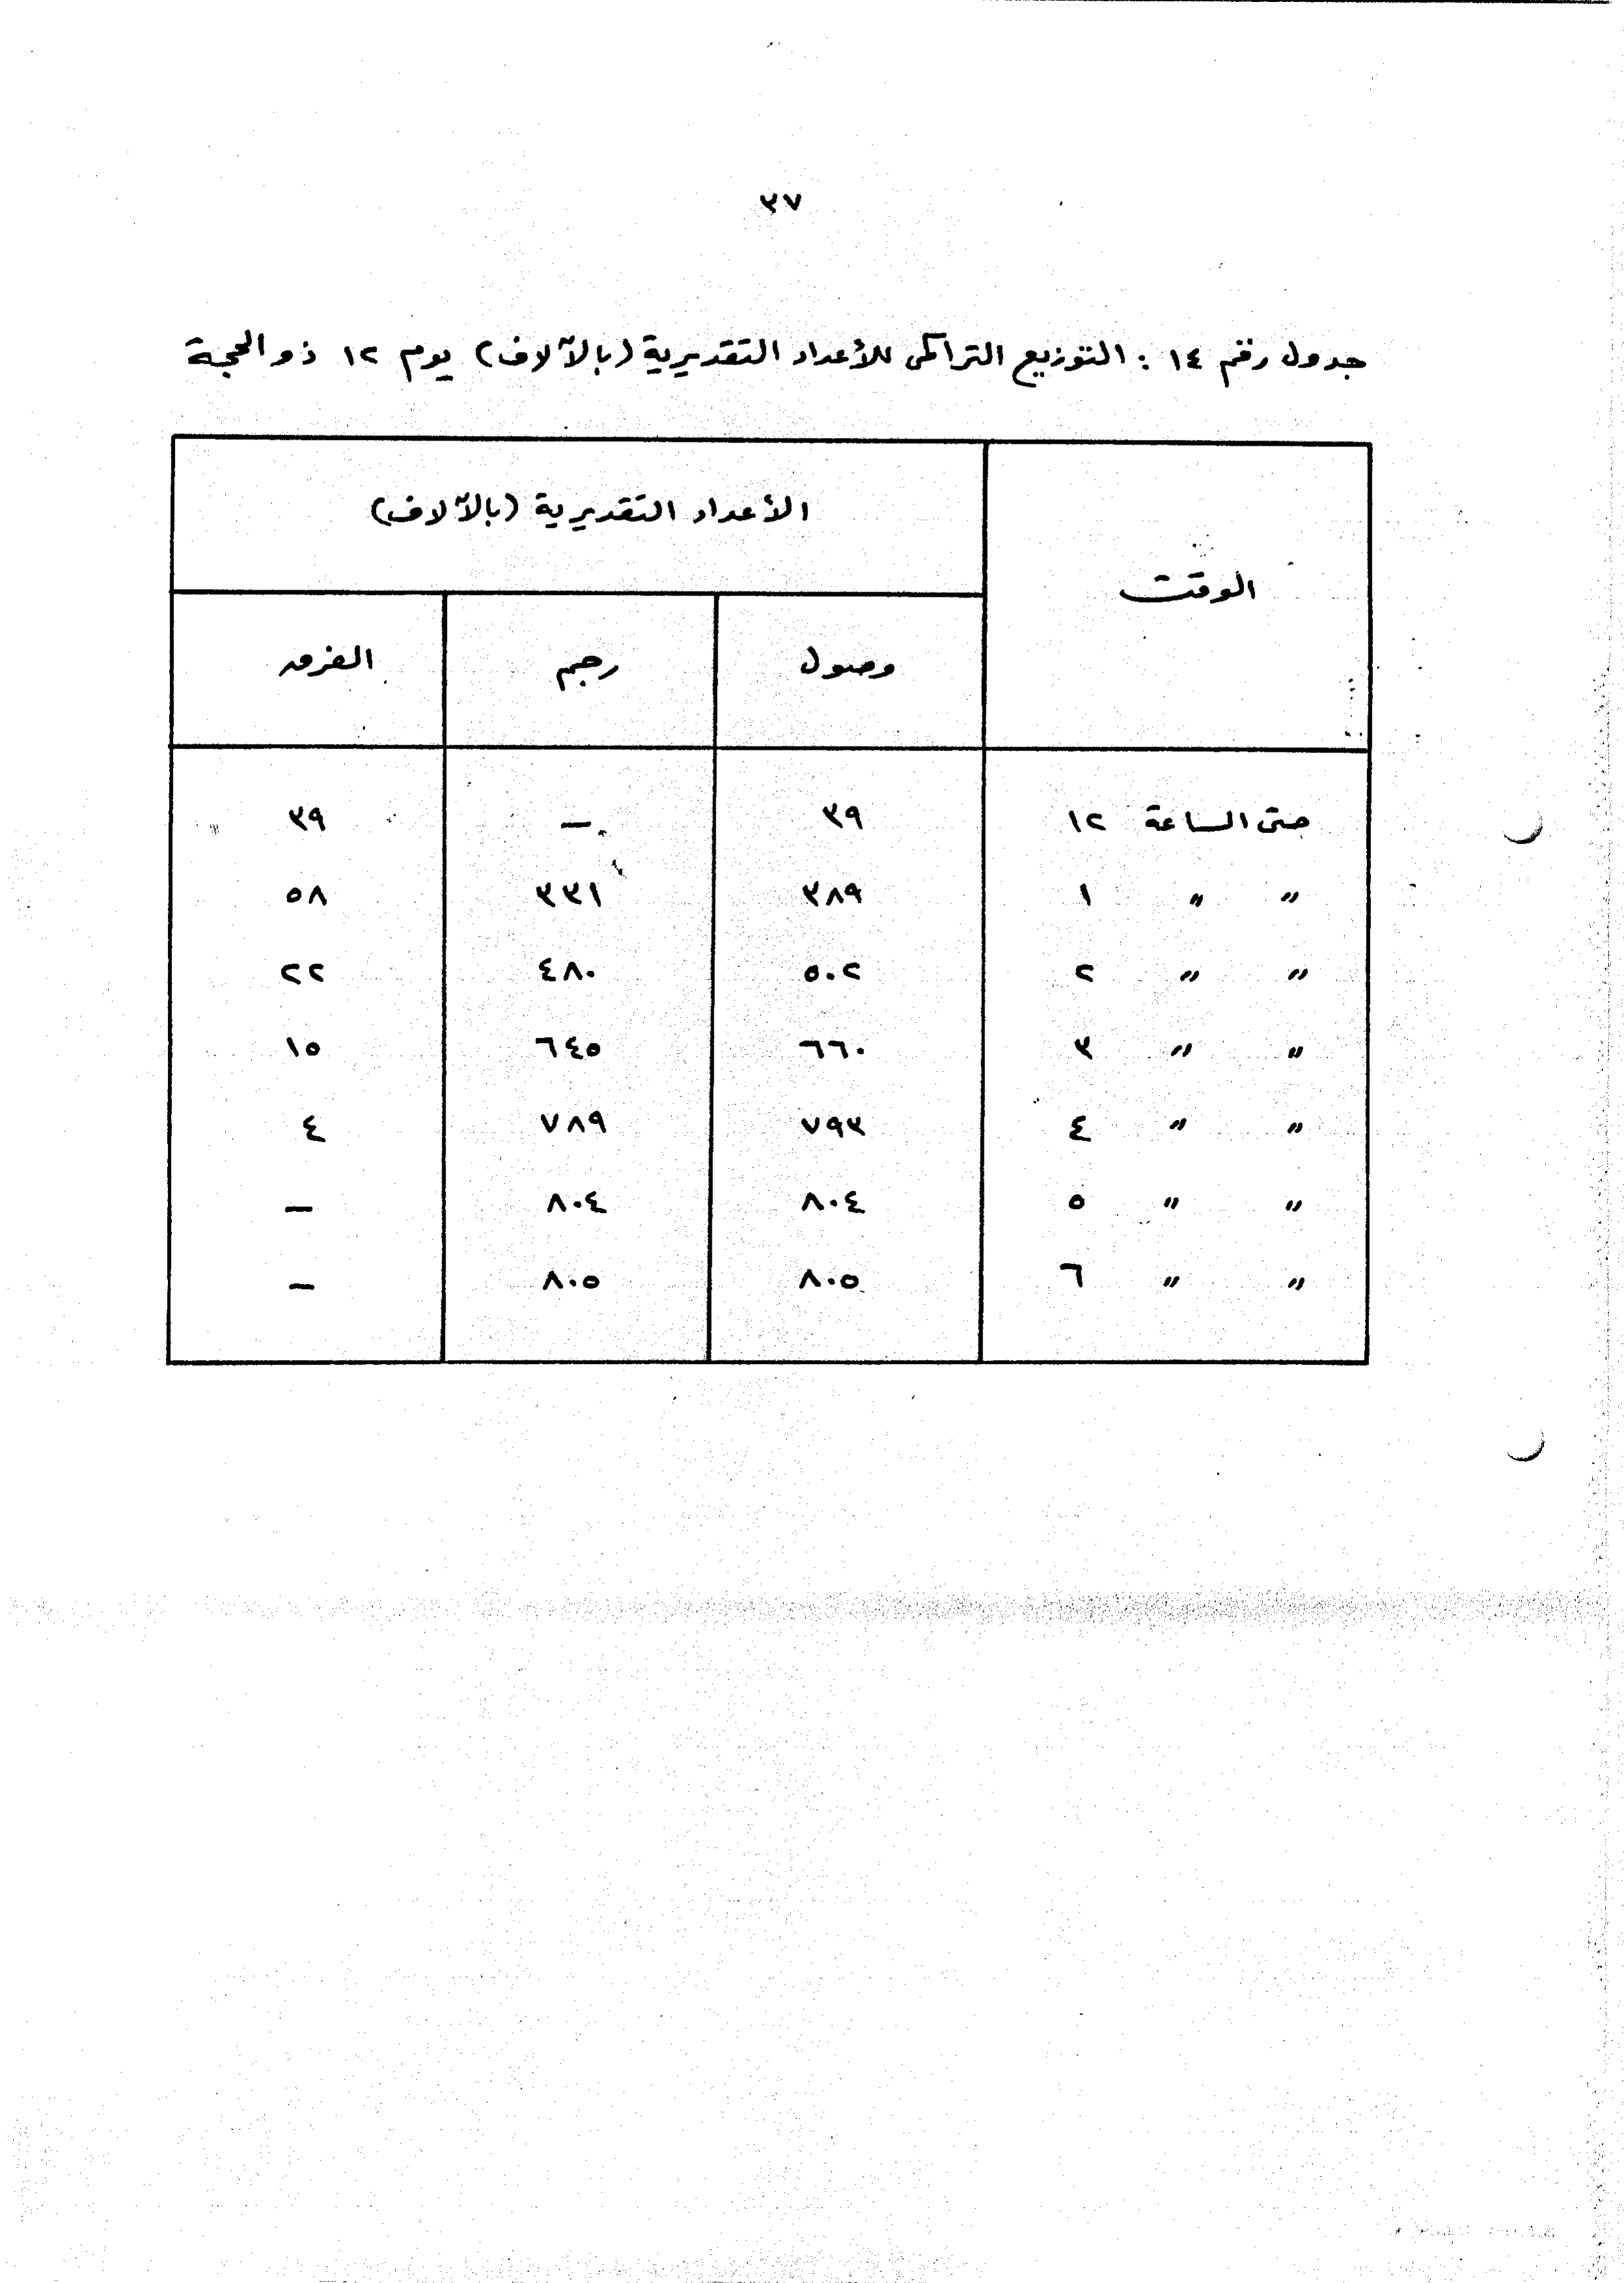 ٣٧
جدول رقم ١٤ : التوزيع التراكمى للأعداد التقديرية (بالآلاف) يوم ١٢ ذو الحجة
الوقت الأعداد التقديرية (بالآلاف)
وصول رجم الفرق
حتى الساعة ١٢ ٣٩ – ٣٩
" " ١ ٣٨٩ ٣٣١ ٥٨
" " ٢ ٥٠٢ ٤٨٠ ٢٢
" " ٣ ٦٦٠ ٦٤٥ ١٥
" " ٤ ٧٩٣ ٧٨٩ ٤
" " ٥ ٨٠٤ ٨٠٤ –
" " ٦ ٨٠٥ ٨٠٥ –